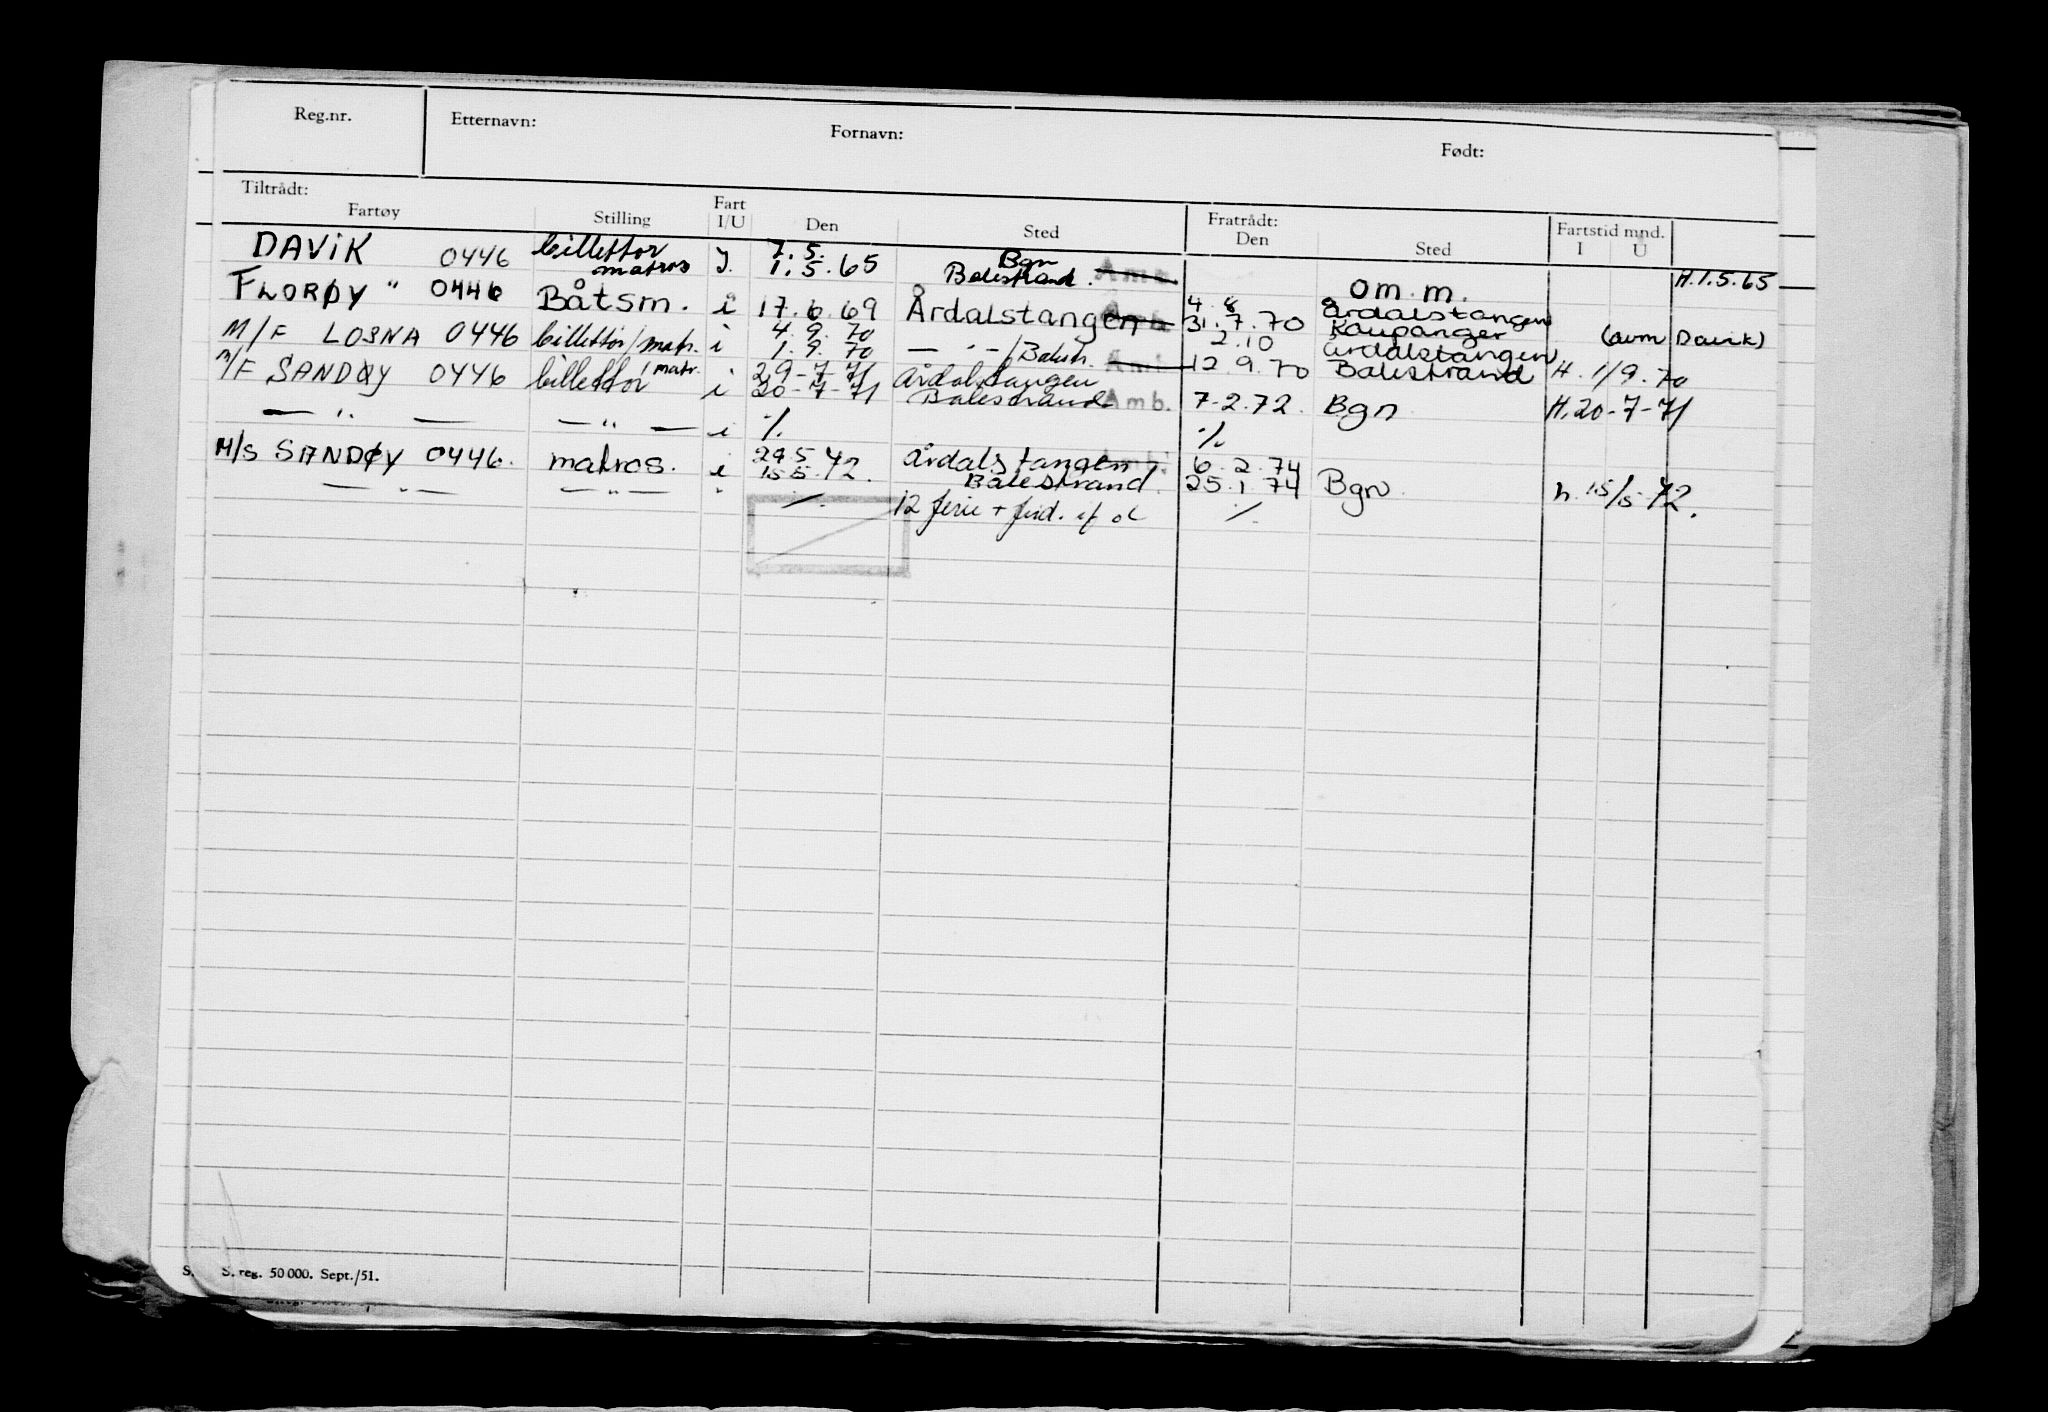 Reg.nr. Etternavn: Fornavn: Født:
Tiltrådt: Fratrådt: Fartstid mnd.
Fartøy Stilling Fart I/U Den Sted Den Sted I U
DAVIK 0446 billettør matros J. 7.5. 1.5.65 Bgn Balestrand. om.m. H.1.5.65
FLORØY " 0446 Båtsm. i 17.6.69 Årdalstangen 4.8 31.7.70 Årdalstangen Kaupanger (avm Davik)
M/F LOSNA 0446 billettør/matr. i 4.9.70 1.9.70 — " — /Balestr. 2.10 12.9.70 Årdalstangen Balestrand H. 1/9.70
M/F SANDØY 0446 billettør/matr. i 29-7-71 20-7-71 Årdalstangen Balestrand Amb. 7-2.72. Bgn H.20-7-71
— " — — " — i ./. ./.
M/S SANDØY 0446. matros. i 29.5 72 15 5.72. Årdalstangen Balestrand. 6.2.74 25.1.74 Bgn. h. 15/5-72.
— " — — " — " ./. 12 ferie + ./.
S. reg. 50 000. Sept./51.